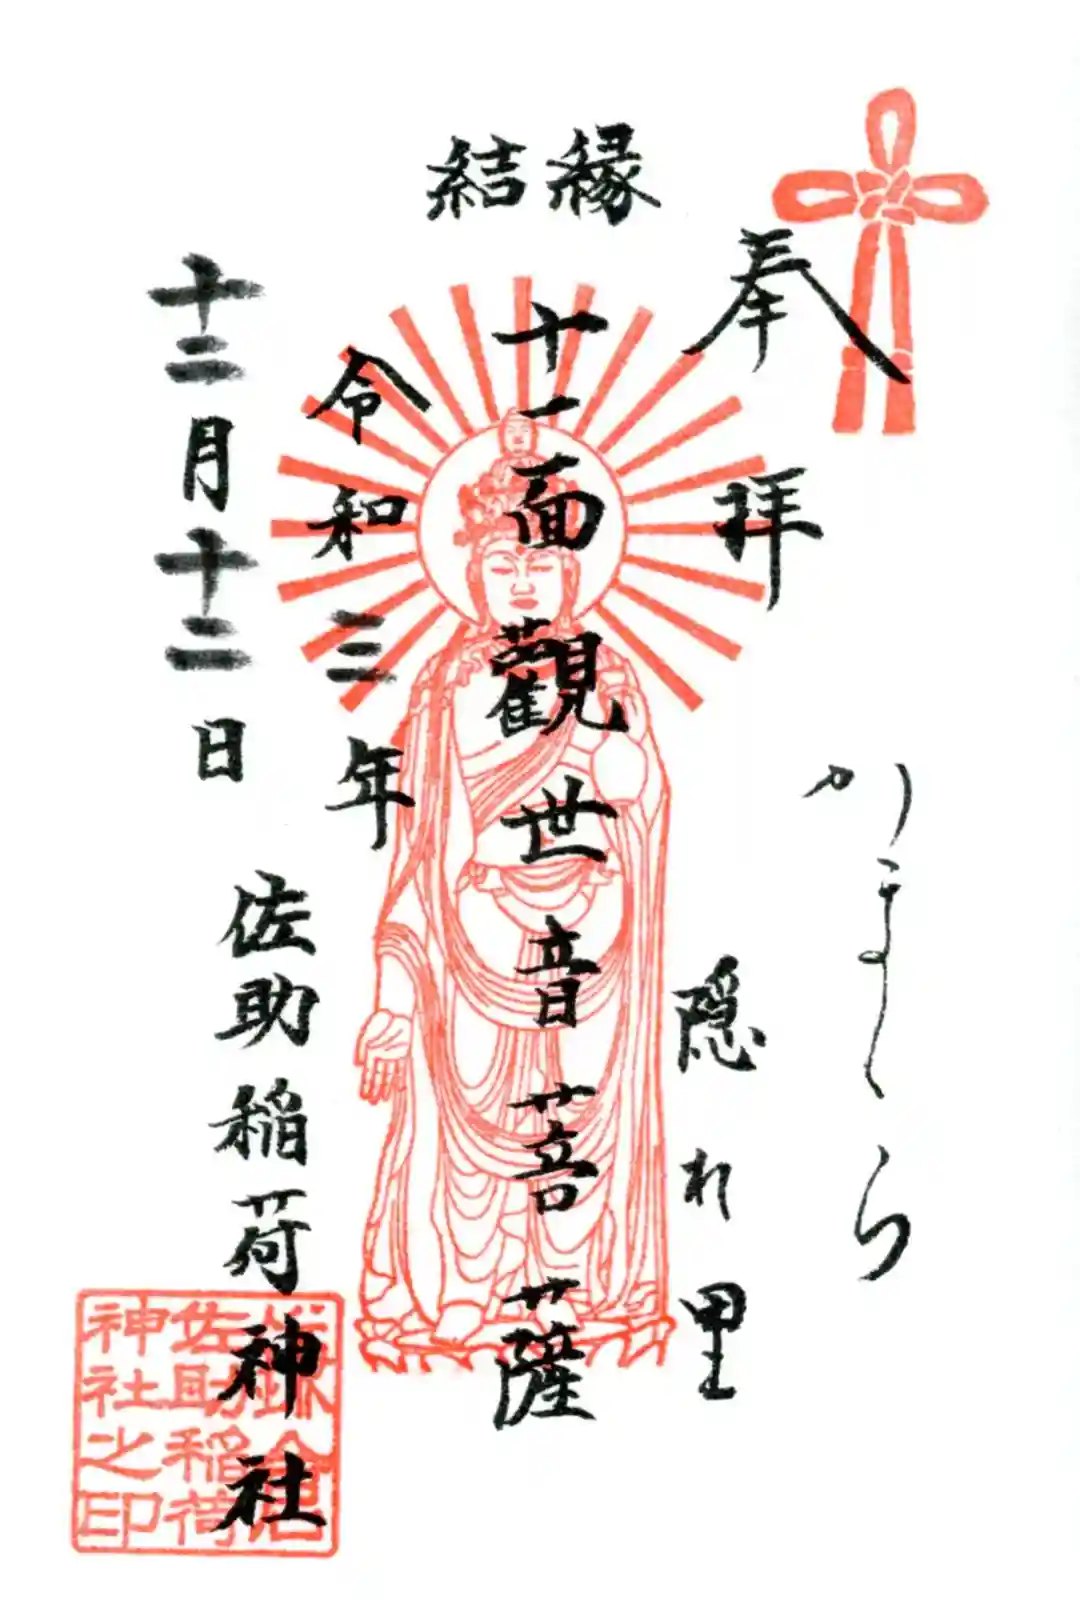 縁結
奉拝
かまくら
隠れ里
十一面觀世音菩薩
令和三年
十二月十二日
佐助稲荷神社
佐助稲荷
神社之印